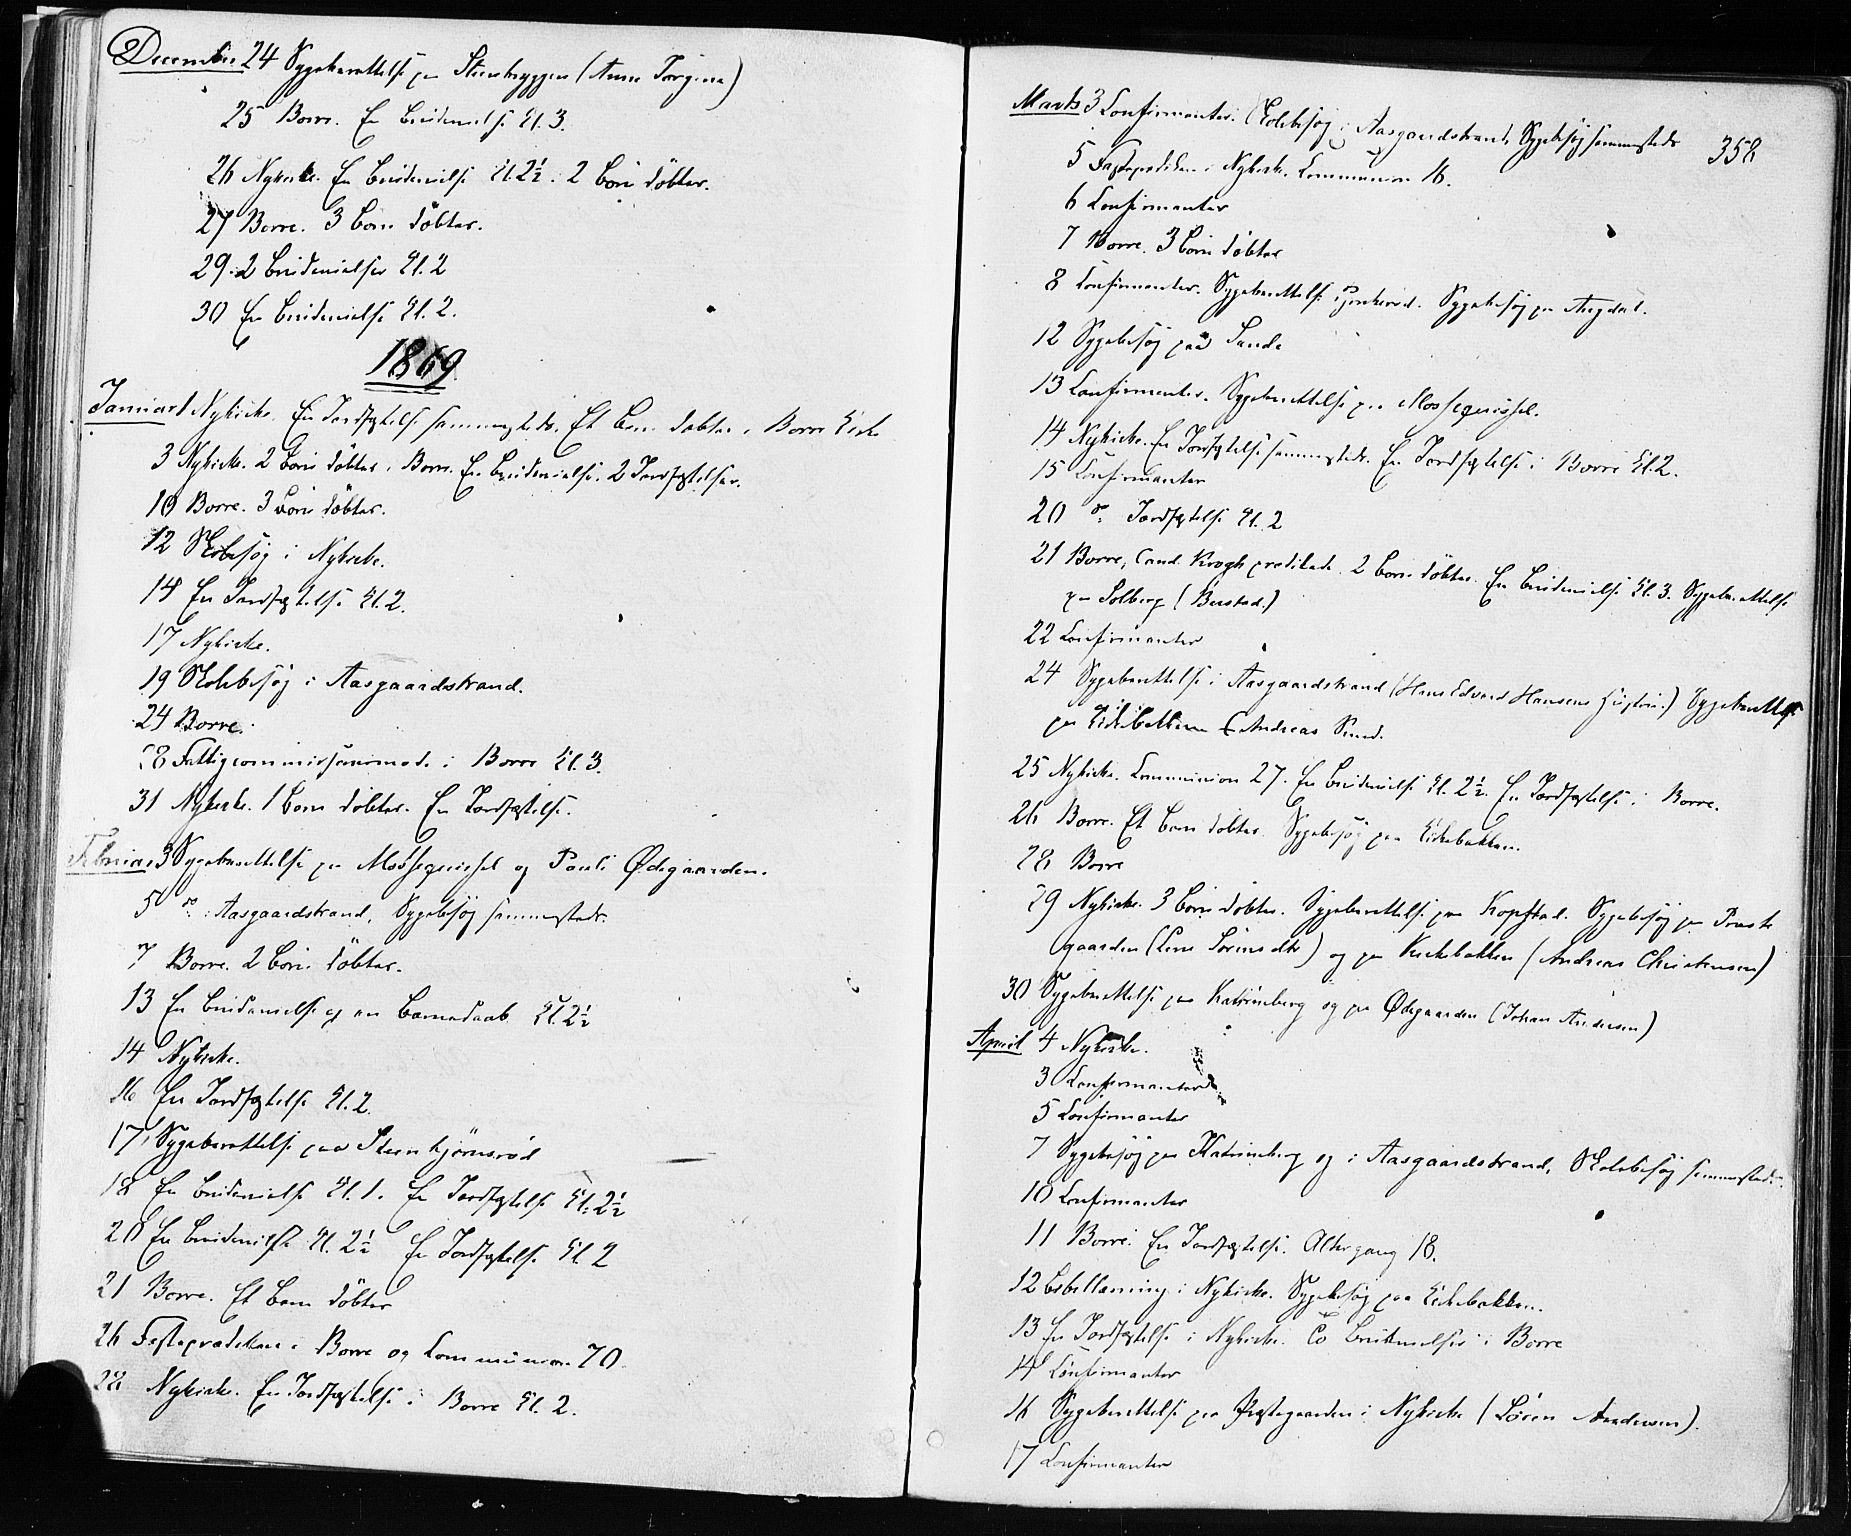 December 24 Sygeberettelse paa Steenbryggen (Anne Torgine)
25 Borre. En Brudevielse Kl. 3.
26 Nykirke. En Brudevielse Kl. 2½. 2 Børn døbtes.
27 Borre. 3 Børn døbtes.
29. 2 Brudevielser Kl. 2
30 En Brudevielse Kl. 2.
1869
Januar 1 Nykirke. En Jordfæstelse sammesteds. Et Barn døbtes i Borre Kirke
3 Nykirke. 2 Børn døbtes i Borre. En Brudevielse. 2 Jordfæstelser.
10 Borre. 3 Børn døbtes.
12 Skolebesøg i Nykirke.
14 En Jordfæstelse Kl. 2.
17 Nykirke.
19 Skolebesøg i Aasgaardstrand.
24 Borre.
28 Fattigcommissionsmøde i Borre Kl. 3.
31 Nykirke. 1 Barn døbtes. En Jordfæstelse.
Februar 3 Sygeberettelse paa Mossequissel og Pauli Ødegaarden.
5 do i Aasgaardstrand, Sygebesøg sammesteds.
7 Borre. 2 Børn døbtes.
13 En Brudevielse og en Barnedaab Kl. 2½
14 Nykirke.
16 En Jordfæstelse Kl. 2.
17 Sygeberettelse paa Steenbjørnsrød
18 En Brudevielse Kl. 1. En Jordfæstelse Kl. 2½
20 En Brudevielse Kl. 2½ En Jordfæstelse Kl. 2
21 Borre. Et Barn døbtes
26 Fasteprædiken i Borre og Communion 70.
28 Nykirke. En Jordfæstelse i Borre Kl. 2.
358
Marts 3 Confirmanter. Skolebesøg i Aasgaardstrand, Sygebesøg sammesteds
5 Fasteprædiken i Nykirke. Communion 16.
6 Confirmanter
7 Borre. 3 Børn døbtes
8 Confirmanter. Sygeberettelse Sygebesøg paa
12 Sygebesøg paa Sande
13 Confirmanter. Sygeberettelse paa Mossequissel.
14 Nykirke. En Jordfæstelse sammesteds. En Jordfæstelse i Borre Kl. 2.
15 Confirmanter
20 do. Jordfæstelse Kl. 2
21 Borre, Cand. Krogh prædikede. 2 Børn døbtes. En Brudevielse Kl. 3. Sygeberettelse
paa Solberg (Berstad.)
22 Confirmanter
24 Sygeberettelse i Aasgaardstrand (Hans Edvard Hansens Hustru.) Sygeberettelse
paa Kirkebakken (Andreas Sund.
25 Nykirke. Communion 27. En Brudevielse Kl. 2½. En Jordfæstelse i Borre.
26 Borre. Et Barn døbtes. Sygebesøg paa Kirkebakken.
28 Borre
29 Nykirke. 3 Børn døbtes. Sygeberettelse paa Kopstad. Sygebesøg paa Præste
gaarden (Lene Sørensdtr) og paa Kirkebakken (Andreas Christensen)
30 Sygeberettelse paa Katrineberg og paa Ødegaarden (Johan Andersen)
April 4 Nykirke.
3 Confirmanter
5 Confirmanter
7 Sygebesøg paa Katrineberg og i Aasgaardstrand, Skolebesøg sammesteds.
10 Confirmanter
11 Borre. En Jordfæstelse. Altergang 18.
12 Bibellæsning i Nykirke. Sygebesøg paa Kirkebakken.
13 En Jordfæstelse i Nykirke. To Brudevielser i Borre
14 Confirmanter
16 Sygeberettelse paa Præstegaarden i Nykirke (Søren Andersen).
17 Confirmanter